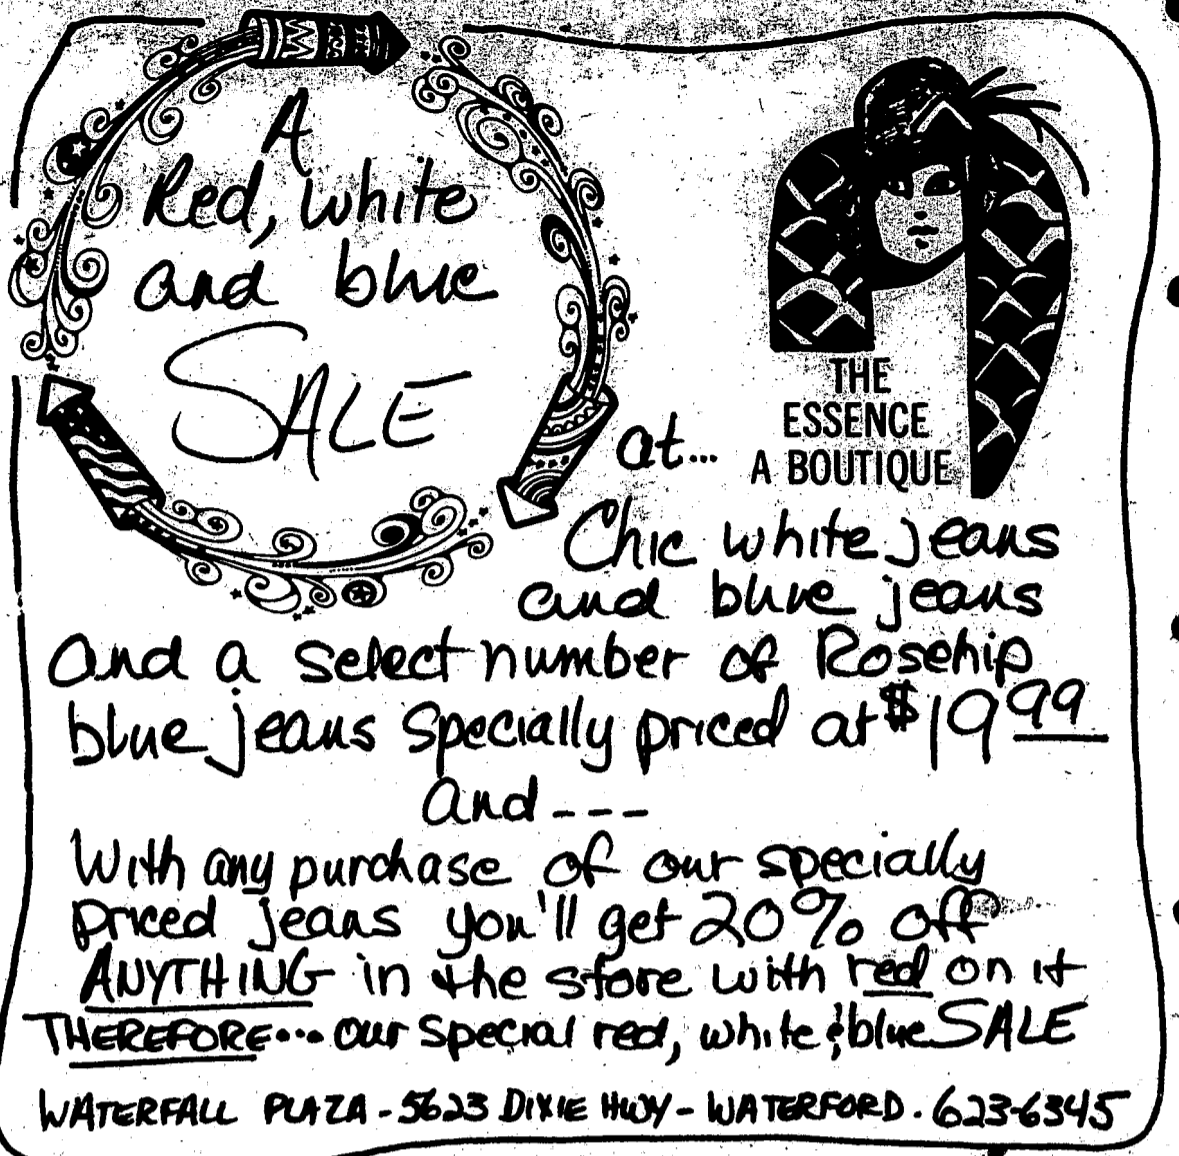 A
Red, white
and blue
SALE
at...
THE
ESSENCE
A BOUTIQUE
Chic white jeans
and blue jeans
and a select number of Rosehip
blue jeans specially priced at $19 99
and---
With any purchase of our specially
priced jeans you'll get 20% off
ANYTHING in the store with red on it
THEREFORE... our special red, white & blue SALE
WATERFALL PLAZA - 5623 DIXIE HWY - WATERFORD. 623-6345